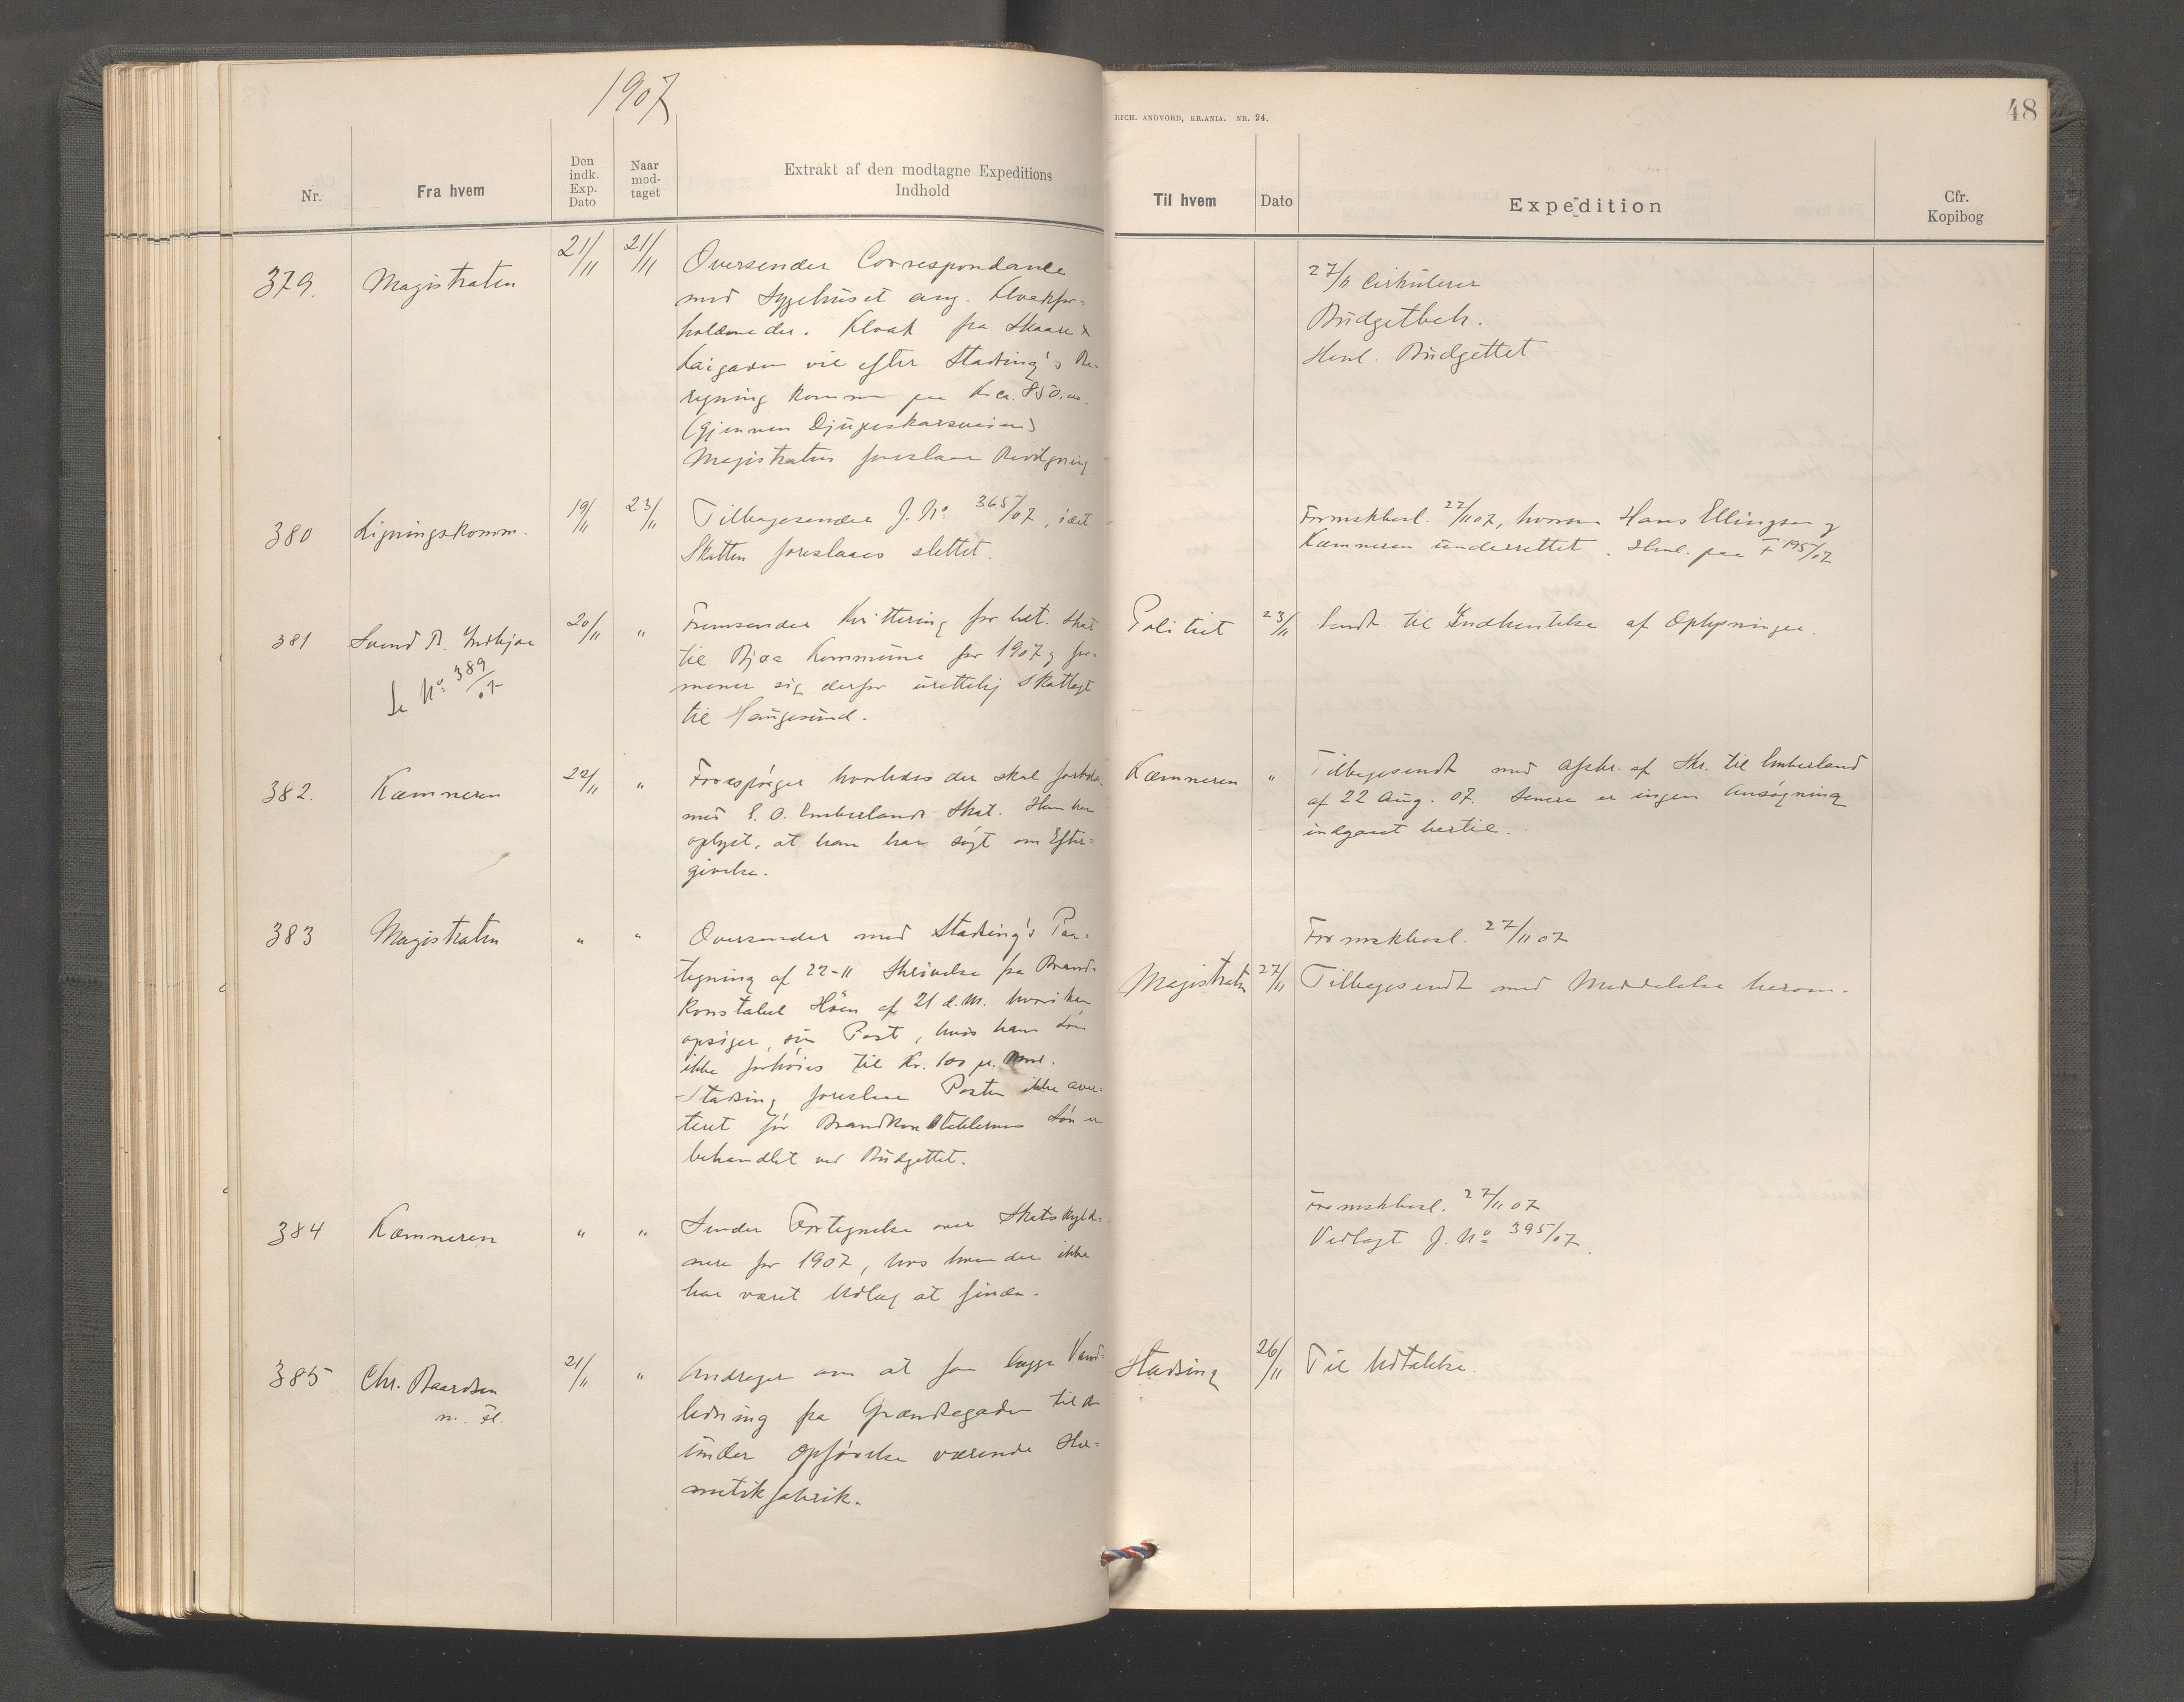 1907
RICH. ANDVORD, KR.ANIA. NR. 24.
48
Nr.
Fra hvem
Den indk. Exp. Dato
Naar mod-taget
Extrakt af den modtagne Expeditions
Indhold
Til hvem
Dato
Expedition
Cfr.
Kopibog
379.
Magistraten
21/11
21/11
Oversender Correspondance
med Sygehuset ang. Kloakfor-
holdene der. Kloak fra Skaare &
Kaigaden vil efter Stadsing's Be-
regning komme paa Kr. ca. 850.00
(gjennem Djupeskarsveien)
Magistraten foreslaar Bevilgning
27/11 Cirkulerer
Budgetbeh.
Henl. Budgettet
380
Ligningskomm.
19/11
23/11
Tilbagesender J. No. 365/07, idet
Skatten foreslaaes slettet.
Formskbesl. 27/11 07, hvorom Hans Ellingsen og
Kæmneren underrettet. Henl. paa F 195/07
381
Svend B.
Se No. 389/07
20/11
"
Fremsender Kvittering for bet. Skat
til Bjoa Kommune for 1907 og for-
mener sig derfor urettelig skatlagt
til Haugesund.
Politiet
23/11
Sendt til Indhentelse af Oplysninger.
382.
Kæmneren
22/11
"
Forespørger hvorledes der skal forholdes
med E. O. Emberlands Skat. Han har
oplyst, at han har søgt om Efter-
givelse.
Kæmneren
"
Tilbagesendt med Afskr. af Skr. til Emberland
af 22 Aug. 07. Senere er ingen Ansøgning
indgaaet hertil.
383
Magistraten
"
"
Oversender med Stadsing's Paa-
tegning af 22-11 Skrivelse fra Brand-
konstabel Höen af 21 d.M. hvori han
opsiger sin Post, hvis hans Løn
ikke forhöies til Kr. 100 pr. Mnd.
Stadsing foreslaar Posten ikke aver-
teret før Brandkonstablernes Løn er
behandlet ved Budgettet.
Formskbesl. 27/11 07
Magistraten
27/11
Tilbagesendt med Meddelelse herom.
384
Kæmneren
"
"
Sender Fortegnelse over Skatskyld-
nere for 1907, hos hvem der ikke
har været Udlæg at finde.
Formskbesl. 27/11 07
Vedlagt J. No 395/07.
385
Chr. Baardsen
m. fl.
21/11
"
Andrager om at faa lægge Vand-
ledning fra Grændsegaden til den
under Opførelse værende Her-
metikfabrik.
Stadsing
26/11
Til Udtalelse.